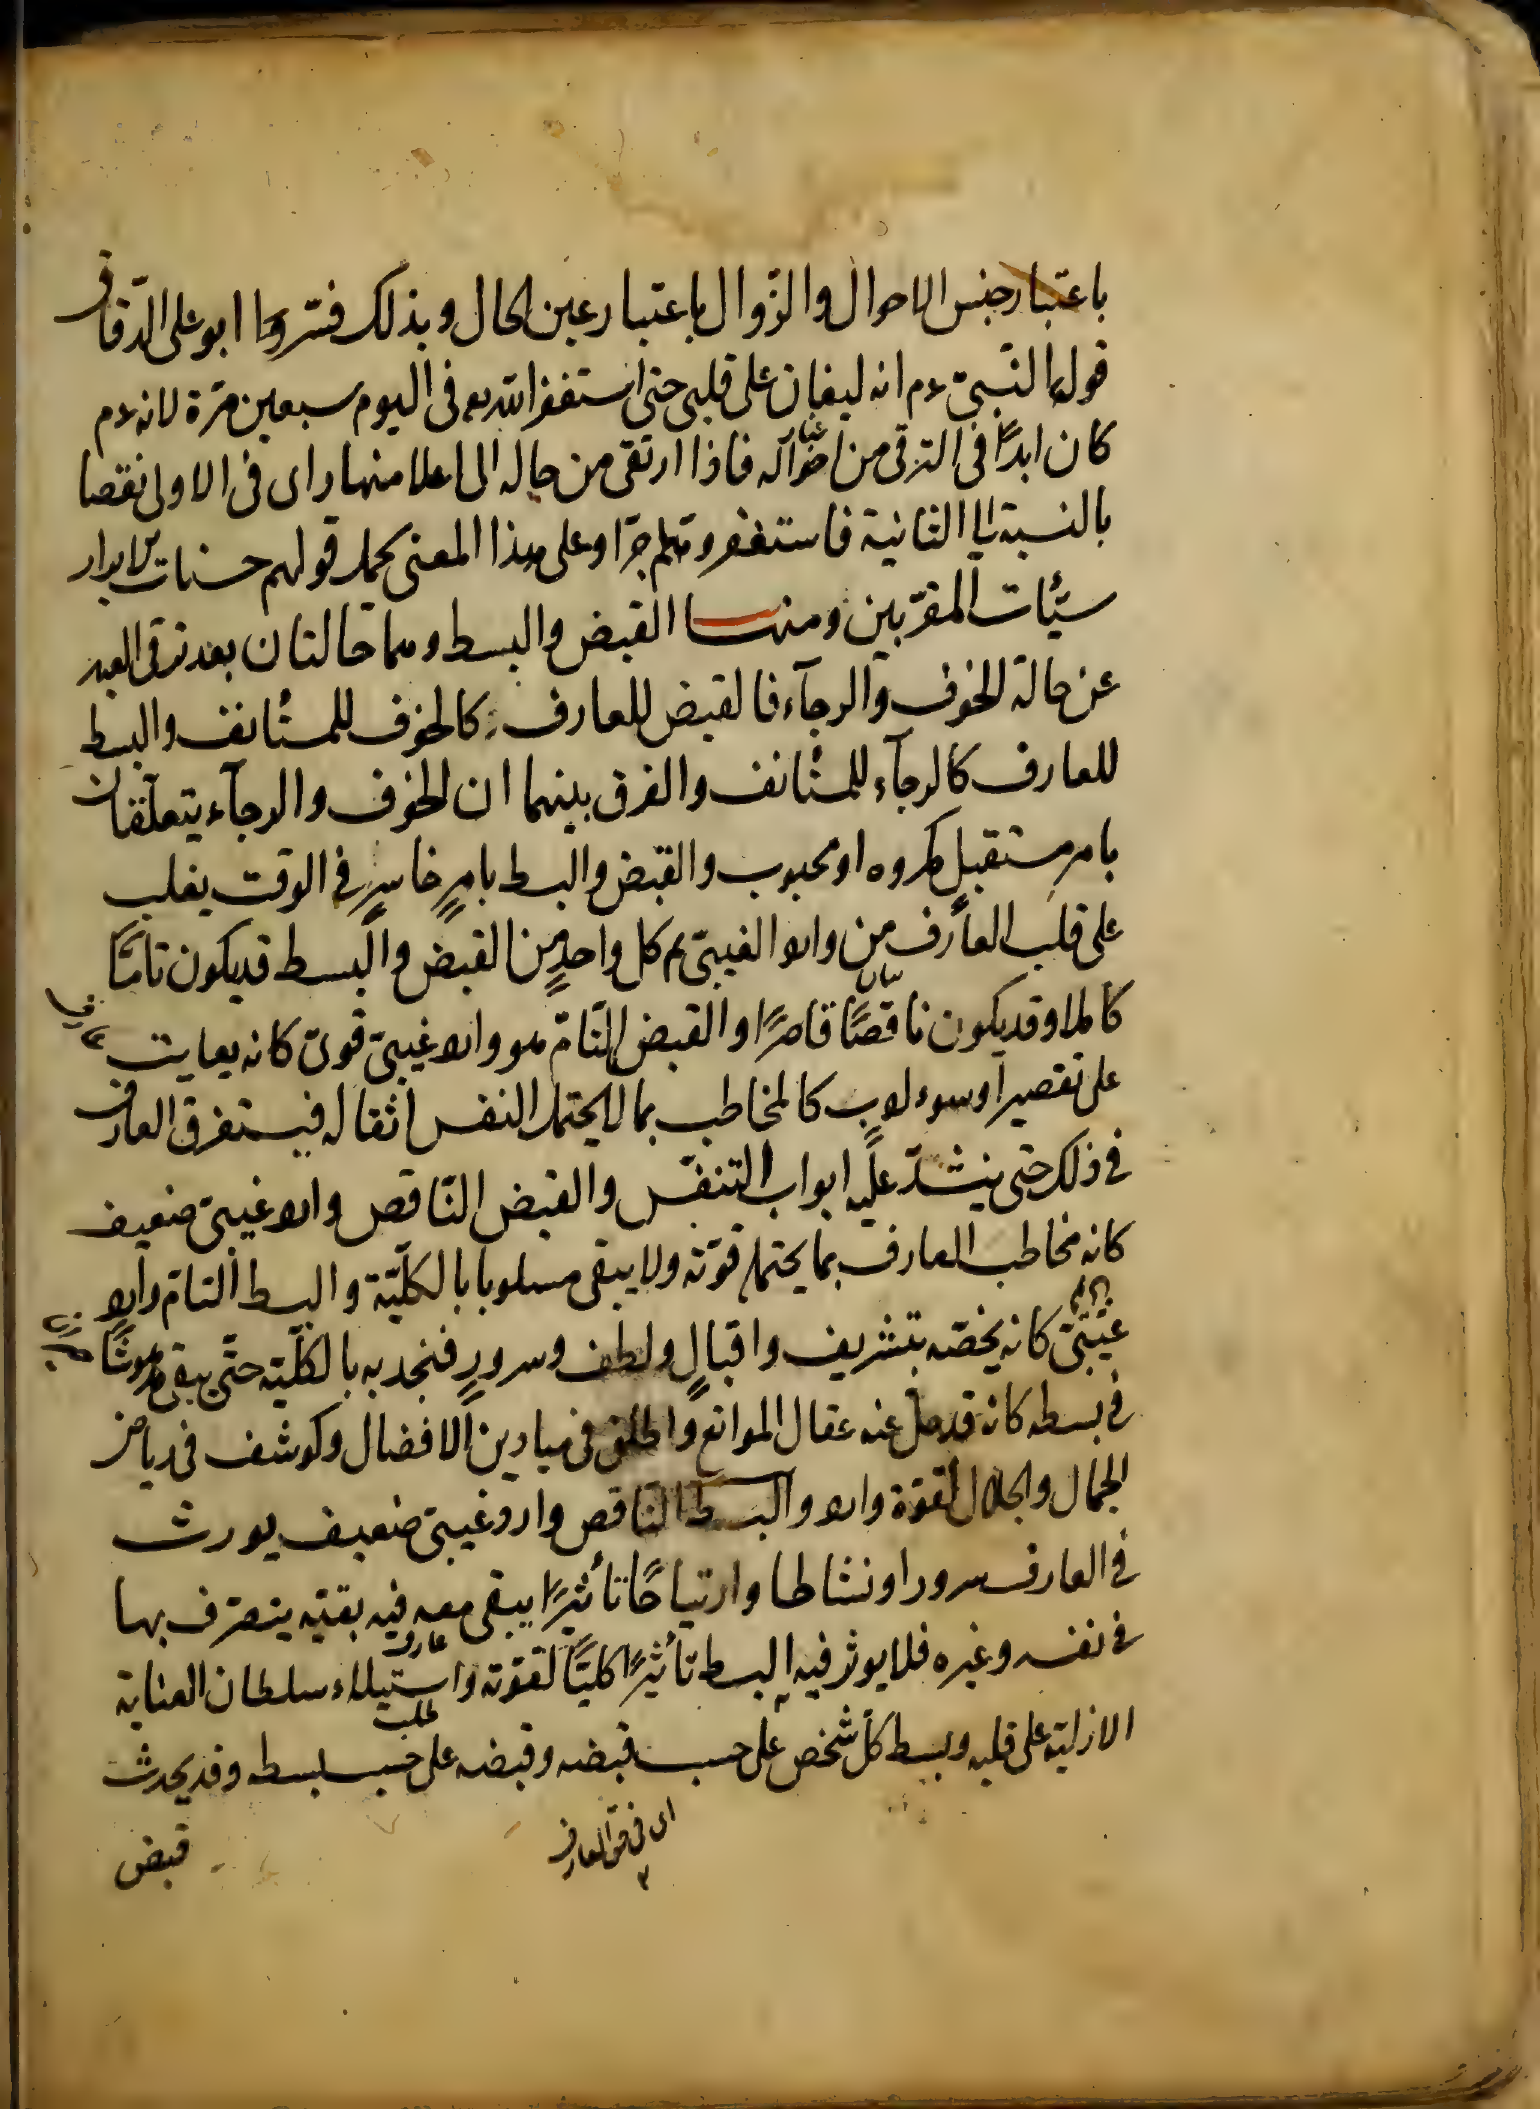 باعتبار جنس الاحوال والزّوال باعتبار عين الحال وبذلك فسّر ابو على الدّقاق
قول النّبىّ عم انه ليغان على قلبى حتى استغفر الله فى اليوم سبعين مرّة لانه عم
كان ابدًا فى الترقى من احواله فاذا ارتقى من حاله الى اعلا منها راى فى الاولى نقصا
بالنسبة الى الثانية فاستغفر وهلم جرّا وعلى هذا المعنى يحمل قولهم حسنات الابرار
سيّئات المقرّبين ومنها القبض والبسط وهما حالتان بعد ترقى العبد
عن حالة الخوف والرجآء فالقبض للعارف كالخوف للمستأنف والبسط
للعارف كالرجآء للمستأنف والفرق بينهما ان الخوف والرجآء يتعلّقان
بامر مستقبل مكروه او محبوب والقبض والبسط بامرٍ حاضرٍ فى الوقت يغلب
على قلب العارف من وارد الغيبىّ ثم كل واحدٍ من القبض والبسط قد يكون تامًّا
كاملا وقد يكون ناقصًا قاصرًا والقبض التّامّ هو وارد غيبىّ قوىّ كانه يعاتب
على تقصير او سوء ادب كالمخاطب بما لا يحتمل النفس اثقاله فيستغرق العارف
فى ذلك حتى ينسدّ عليه ابواب التنفّس والقبض النّاقص وارد غيبىّ ضعيف
كانه مخاطب العارف بما يحتمل قوّته ولا يبقى مسلوبا بالكلّيّة والبسط التامّ وارد
غيبىّ كانه يخصّه بتشريف واقبالٍ ولطف وسرورٍ فنجد به بالكلّيّة حتّى يبقى مدهوشًا
فى بسطه كانه قد حلّ عنه عقال الموانع واطلق فى ميادين الافضال وكوشف فى رياض
الجمال والجلال لقوّة وارد والبسط النّاقص وارد غيبىّ ضعيف يورث
فى العارف سرورا ونشاطا وارتياحًا تأثيرًا يبقى معه فيه بقيّه يتصرّف بها
فى نفسه وغيره فلا يوثر فيه البسط تأثيرًا كليًّا لقوّته واستيلاء سلطان العناية
الازليّة على قلبه وبسط كلّ شخص على حسب قبضه وقبضه على حسب بسطه وقد يحدث
اى فى حق العارف
قبض